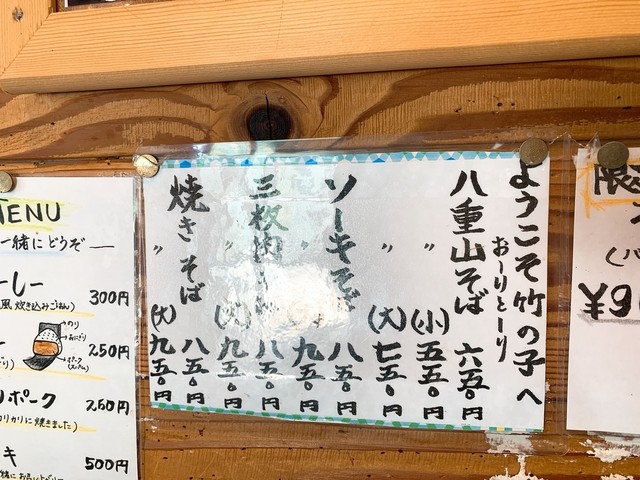 ようこそ竹の子へ
おーりとーり
八重山そば 六五〇円
〃 (小) 五五〇円
〃 (大) 七五〇円
ソーキそば 八五〇円
〃 九五〇円
三枚肉そば 八五〇円
〃 (大) 九五〇円
焼きそば 八五〇円
〃 (大) 九五〇円
MENU
一緒にどうぞ
ーしー 300円
風炊き込みごはん)
250円
のり
おにぎり
ポーク
リポーク 250円
カリカリに焼きました)
キ 500円
限定
¥9